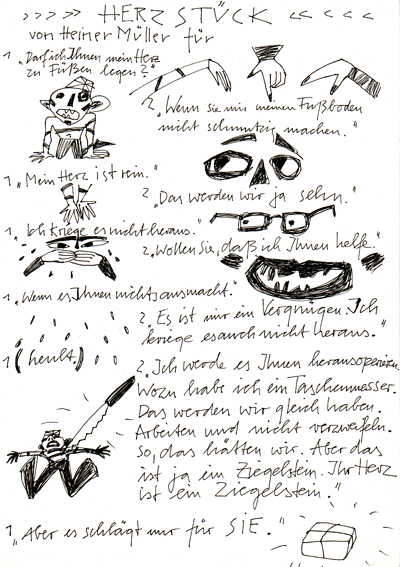 >>>> HERZSTÜCK <<<<
von Heiner Müller für
1 "Darf ich Ihnen mein Herz
zu Füßen legen?"
2. "Wenn sie mir meinen Fußboden
nicht schmutzig machen."
1 "Mein Herz ist rein."
2. "Das werden wir ja sehn."
1 "Ich kriege es nicht heraus."
2. "Wollen Sie, daß ich Ihnen helfe."
1 "Wenn es Ihnen nichts ausmacht."
2. "Es ist mir ein Vergnügen. Ich
kriege es auch nicht heraus."
1 (heult.)
2. "Ich werde es Ihnen herausoperieren.
Wozu habe ich ein Taschenmesser.
Das werden wir gleich haben.
Arbeiten und nicht verzweifeln.
So, das hätten wir. Aber das
ist ja ein Ziegelstein. Ihr Herz
ist ein Ziegelstein."
1 "Aber es schlägt nur für SIE."